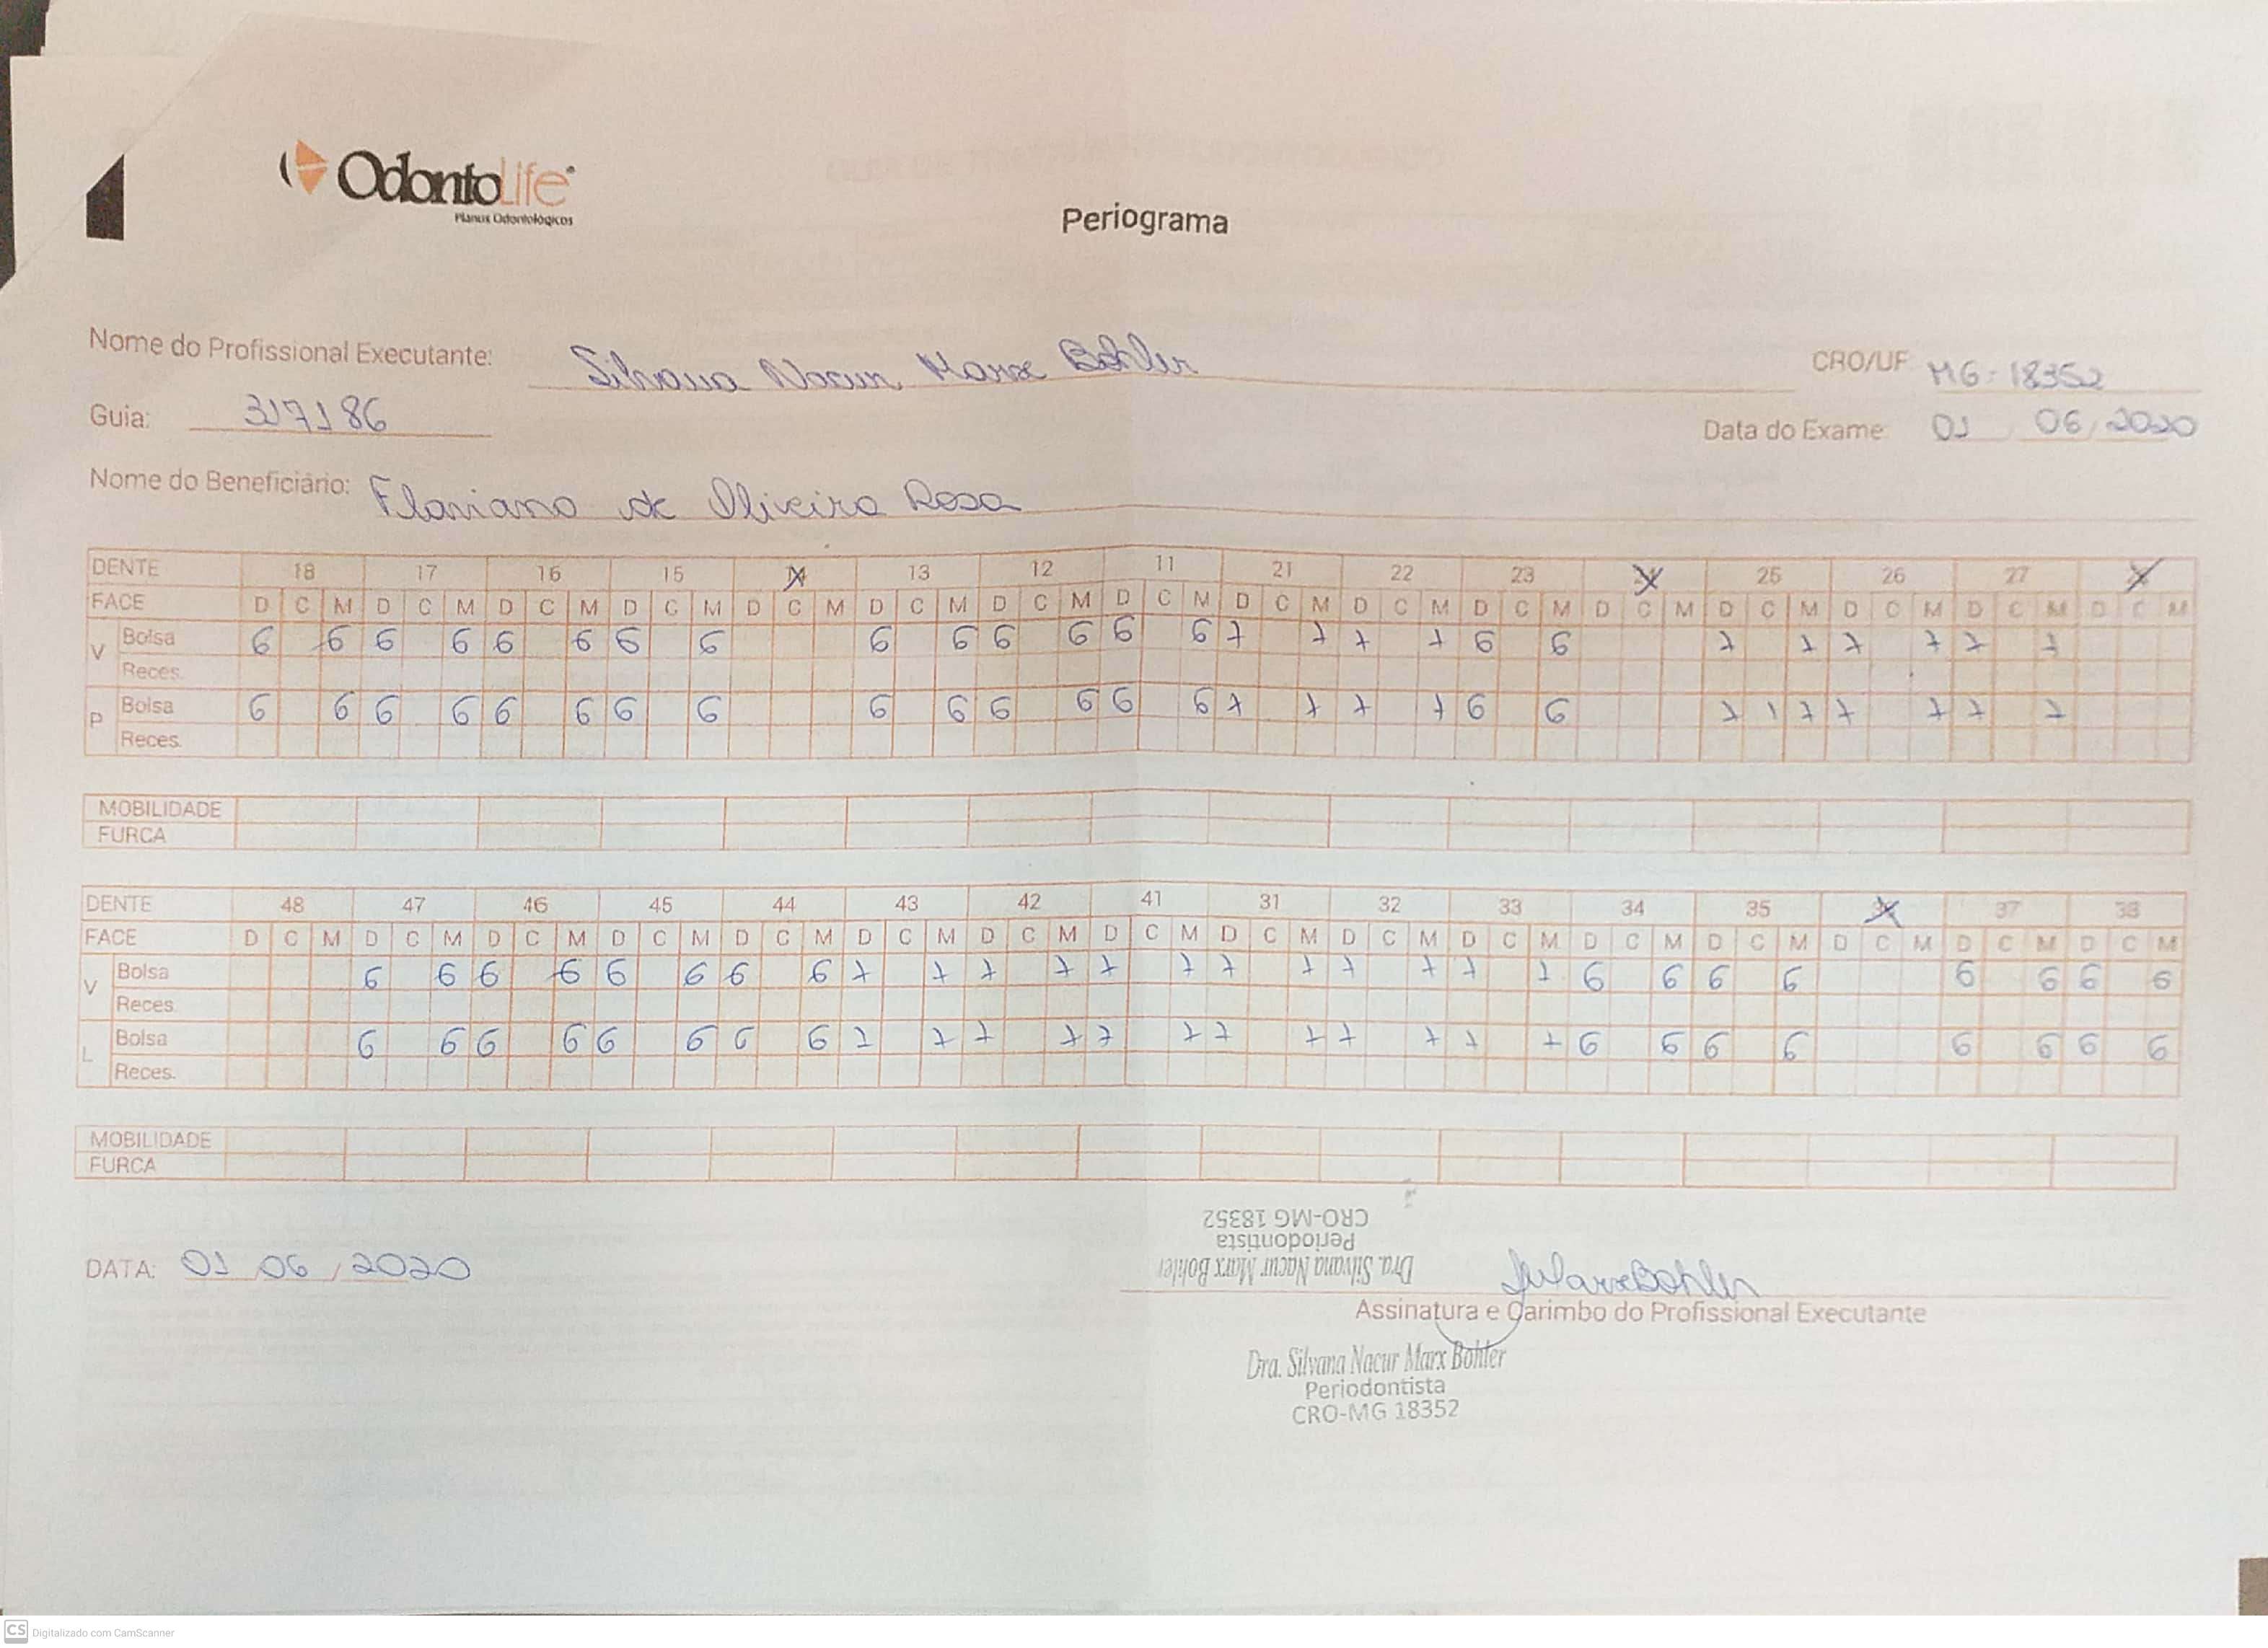 OdontoLife
Planos Odontológicos
Periograma
Nome do Profissional Executante: Silvana Nacur Marx Bohler CRO/UF MG-18352
Guia: 317186 Data do Exame 01 06/2020
Nome do Beneficiário: Flaviano de Oliveira Rosa
DENTE 18 17 16 15 13 12 11 21 22 23 25 26 27
FACE D C M D C M D C M D C M D C M D C M D C M D C M D C M D C M D C M D C M D C M D C M D C M D C M
V Bolsa 6 6 6 6 6 6 6 6 6 6 6 6 6 6 7 7 7 7 6 6 7 7 7 7 7 7
Reces.
P Bolsa 6 6 6 6 6 6 6 6 6 6 6 6 6 6 7 7 7 7 6 6 7 1 7 7 7 7 7
Reces.
MOBILIDADE
FURCA
DENTE 48 47 46 45 44 43 42 41 31 32 33 34 35 37 38
FACE D C M D C M D C M D C M D C M D C M D C M D C M D C M D C M D C M D C M D C M D C M D C M D C M
V Bolsa 6 6 6 6 6 6 6 6 7 7 7 7 7 7 7 7 7 7 7 7 6 6 6 6 6 6 6 6
Reces.
L Bolsa 6 6 6 6 6 6 6 6 7 7 7 7 7 7 7 7 7 7 7 7 6 6 6 6 6 6 6 6
Reces.
MOBILIDADE
FURCA
Dra. Silvana Nacur Marx Bohler
Periodontista
CRO-MG 18352
DATA: 01 06/2020
Assinatura e Carimbo do Profissional Executante
Dra. Silvana Nacur Marx Bohler
Periodontista
CRO-MG 18352
CS Digitalizado com CamScanner